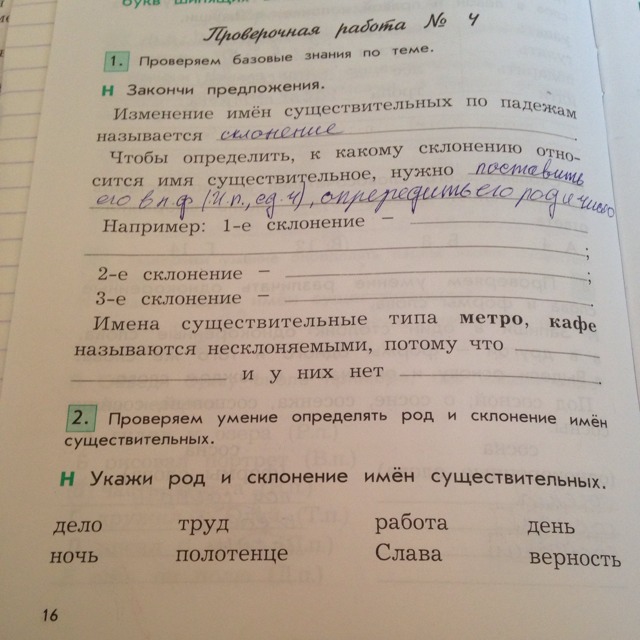 букв шипящих
Проверочная работа № 4
1. Проверяем базовые знания по теме.
Н Закончи предложения.
Изменение имён существительных по падежам
называется склонение.
Чтобы определить, к какому склонению отно-
сится имя существительное, нужно поставить
его в н.ф (И.п., ед.ч), определить его род и число
Например: 1-е склонение –
;
2-е склонение – ;
3-е склонение – .
Имена существительные типа метро, кафе
называются несклоняемыми, потому что
и у них нет .
2. Проверяем умение определять род и склонение имён
существительных.
Н Укажи род и склонение имён существительных.
дело труд работа день
ночь полотенце Слава верность
16